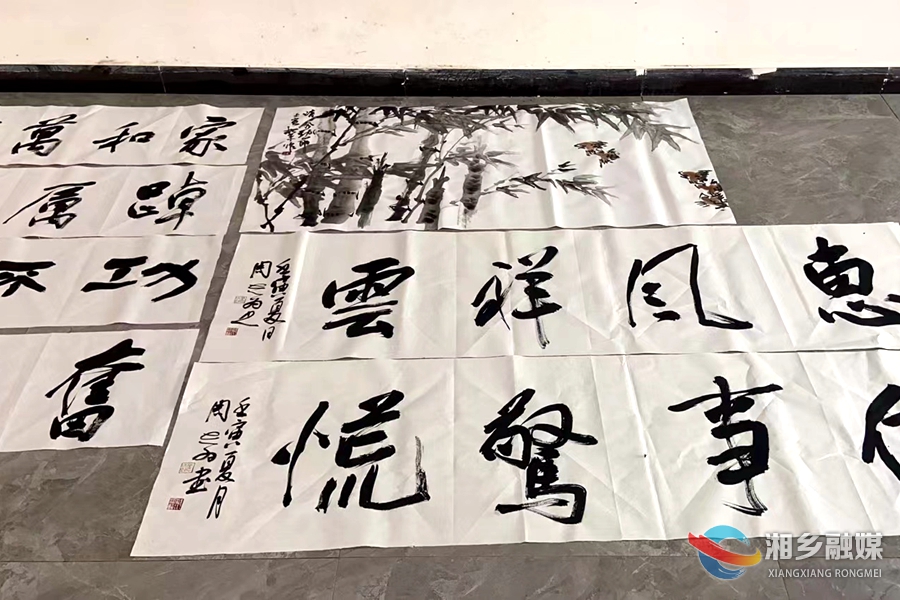 家和萬
踔厲
功不
奮
惠風祥雲
壬寅夏月
事驚慌
壬寅夏月
湘乡融媒
XIANGXIANG RONGMEI